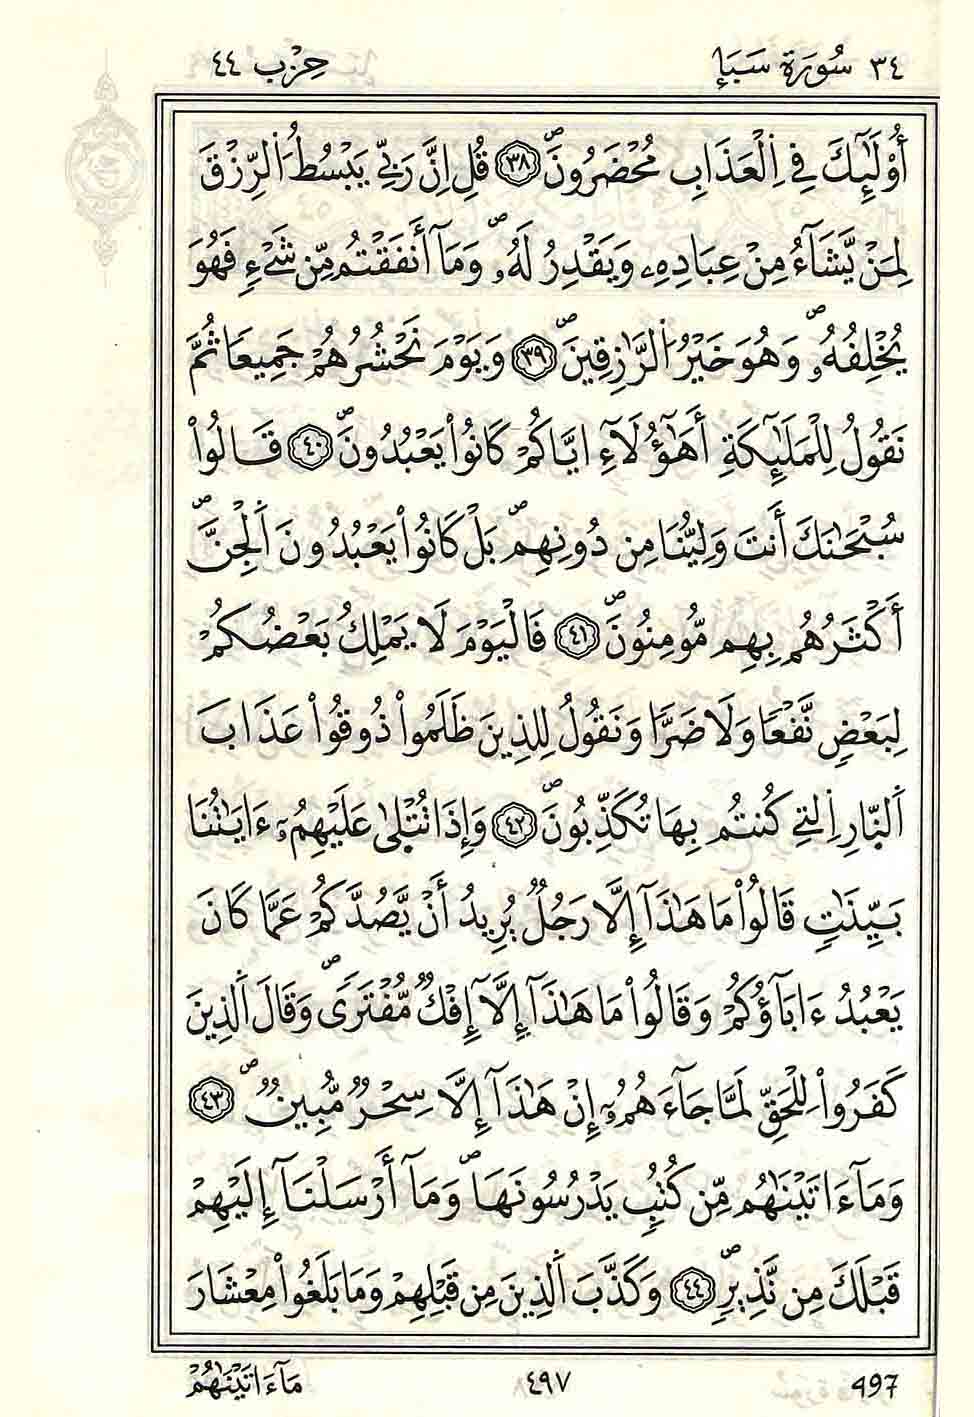 ٣٤ سُورَةُ سَبَإٍ حِزْب ٤٤
أُوْلَٰٓئِكَ فِے اِ۬لْعَذَابِ مُحْضَرُونَۖ ٣٨ قُلِ اِنَّ رَبِّے يَبْسُطُ اُ۬لرِّزْقَ
لِمَنْ يَّشَآءُ مِنْ عِبَادِهِۦ وَيَقْدِرُ لَهُۥۖ وَمَآ أَنفَقْتُم مِّن شَےْءٖ فَهُوَ
يُخْلِفُهُۥۖ وَهُوَ خَيْرُ اُ۬لرَّٰزِقِينَۖ ٣٩ وَيَوْمَ نَحْشُرُهُمْ جَمِيعاٗ ثُمَّ
نَقُولُ لِلْمَلَٰٓئِكَةِ أَهَٰٓؤُلَآءِ اياكُمْ كَانُواْ يَعْبُدُونَۖ ٤٠ قَالُواْ
سُبْحَٰنَكَ أَنتَ وَلِيُّنَا مِن دُونِهِمۖ بَلْ كَانُواْ يَعْبُدُونَ اَ۬لْجِنَّۖ
أَكْثَرُهُم بِهِم مُّومِنُونَۖ ٤١ فَالْيَوْمَ لَا يَمْلِكُ بَعْضُكُمْ
لِبَعْضٖ نَّفْعاٗ وَلَا ضَرّاٗ وَنَقُولُ لِلذِينَ ظَلَمُواْ ذُوقُواْ عَذَابَ
اَ۬لنّارِ اِ۬لتِے كُنتُم بِهَا تُكَذِّبُونَۖ ٤٢ وَإِذَا تُتْلَىٰ عَلَيْهِمُۥٓ ءَايَٰتُنَا
بَيِّنَٰتٖ قَالُواْ مَا هَٰذَآ إِلَّا رَجُلٞ يُرِيدُ أَنْ يَّصُدَّكُمْ عَمَّا كَانَ
يَعْبُدُ ءَابَآؤُكُمْ وَقَالُواْ مَا هَٰذَآ إِلَّآ إِفْكٞ مُّفْتَرىٗۖ وَقَالَ اَ۬لذِينَ
كَفَرُواْ لِلْحَقِّ لَمَّا جَآءَهُمُۥٓ إِنْ هَٰذَآ إِلَّا سِحْرٞ مُّبِينٞۖ ٤٣
وَمَآ ءَاتَيْنَٰهُم مِّن كُتُبٖ يَدْرُسُونَهَاۖ وَمَآ أَرْسَلْنَآ إِلَيْهِمْ
قَبْلَكَ مِن نَّذِيرٖۖ ٤٤ وَكَذَّبَ اَ۬لذِينَ مِن قَبْلِهِمْ وَمَا بَلَغُواْ مِعْشَارَ
مَآ ءَاتَيْنَٰهُمْ ٤٩٧ 497